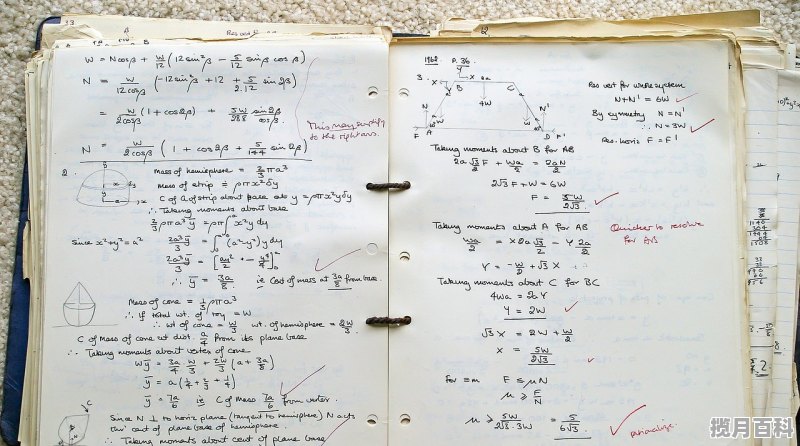 33
W = Ncosβ + W/12 (12 sin²β - 5/12 sinβ cosβ)
N = W/12cosβ (-12 sin²β + 12 + 5/2.12 sin 2β)
= W/2cosβ (1 + cos2β) + 5W/288 sin2β/cosβ.
This may simplify
to the right ans.
N = W/2cosβ (1 + cos2β + 5/144 sin2β)
2.
Mass of hemisphere = 2/3 πρa³
Mass of strip ≠ ρπx²δy
C of G of strip about base as y = ρπx²yδy
∴ Taking moments about base
2/3 ρπa³ȳ = ∫ρπx²y dy
Since x²+y² = a²
2a³ȳ/3 = ∫(a²-y²)y dy
2a³ȳ/3 = [ay²/2 - y⁴/4]
∴ ȳ = 3a/8 i.e. Cent of mass at 3a/8 from base.
Mass of cone = 1/3 ρπa³
∴ If total wt. of toy = W
∴ wt of cone = W/3 wt. of hemisphere = 2W/3
C of Mass of cone at dist. a/4 from its plane base
∴ Taking moments about vertex of cone
Wȳ = 3a/4 W/3 + 2W/3 (a + 3a/8)
ȳ = a(1/4 + 2/3 + 1/4)
ȳ = 7a/6 i.e. C of mass 7a/6 from vertex.
Since N ⊥ to horiz plane (tangent to hemisphere) N acts
thr' cent of plane base of hemisphere.
∴ Taking moments about cent of plane base
1968 P. 36
3.
Res vert for whole system
N+N' = 6W
By symmetry N = N'
∴ N = 3W
Res. horiz F = F'
Taking moments about B for AB
2a √3/2 F + Wa/2 = 2aN/2
2√3F + W = 6W
F = 5W/2√3
Taking moments about A for AB
Quicker to resolve
for AB
Wa/2 = X 2a√3/2 - Y 2a/2
Y = -W/2 + √3X
Taking moments about C for BC
4Wa = 2aY
Y = 2W
√3X = 2W + W/2
X = 5W/2√3
for =m F ≤ μN
μ ≥ F/N
μ ≥ 5W/2√3.3W = 5/6√3
rationalize.
揽月百科